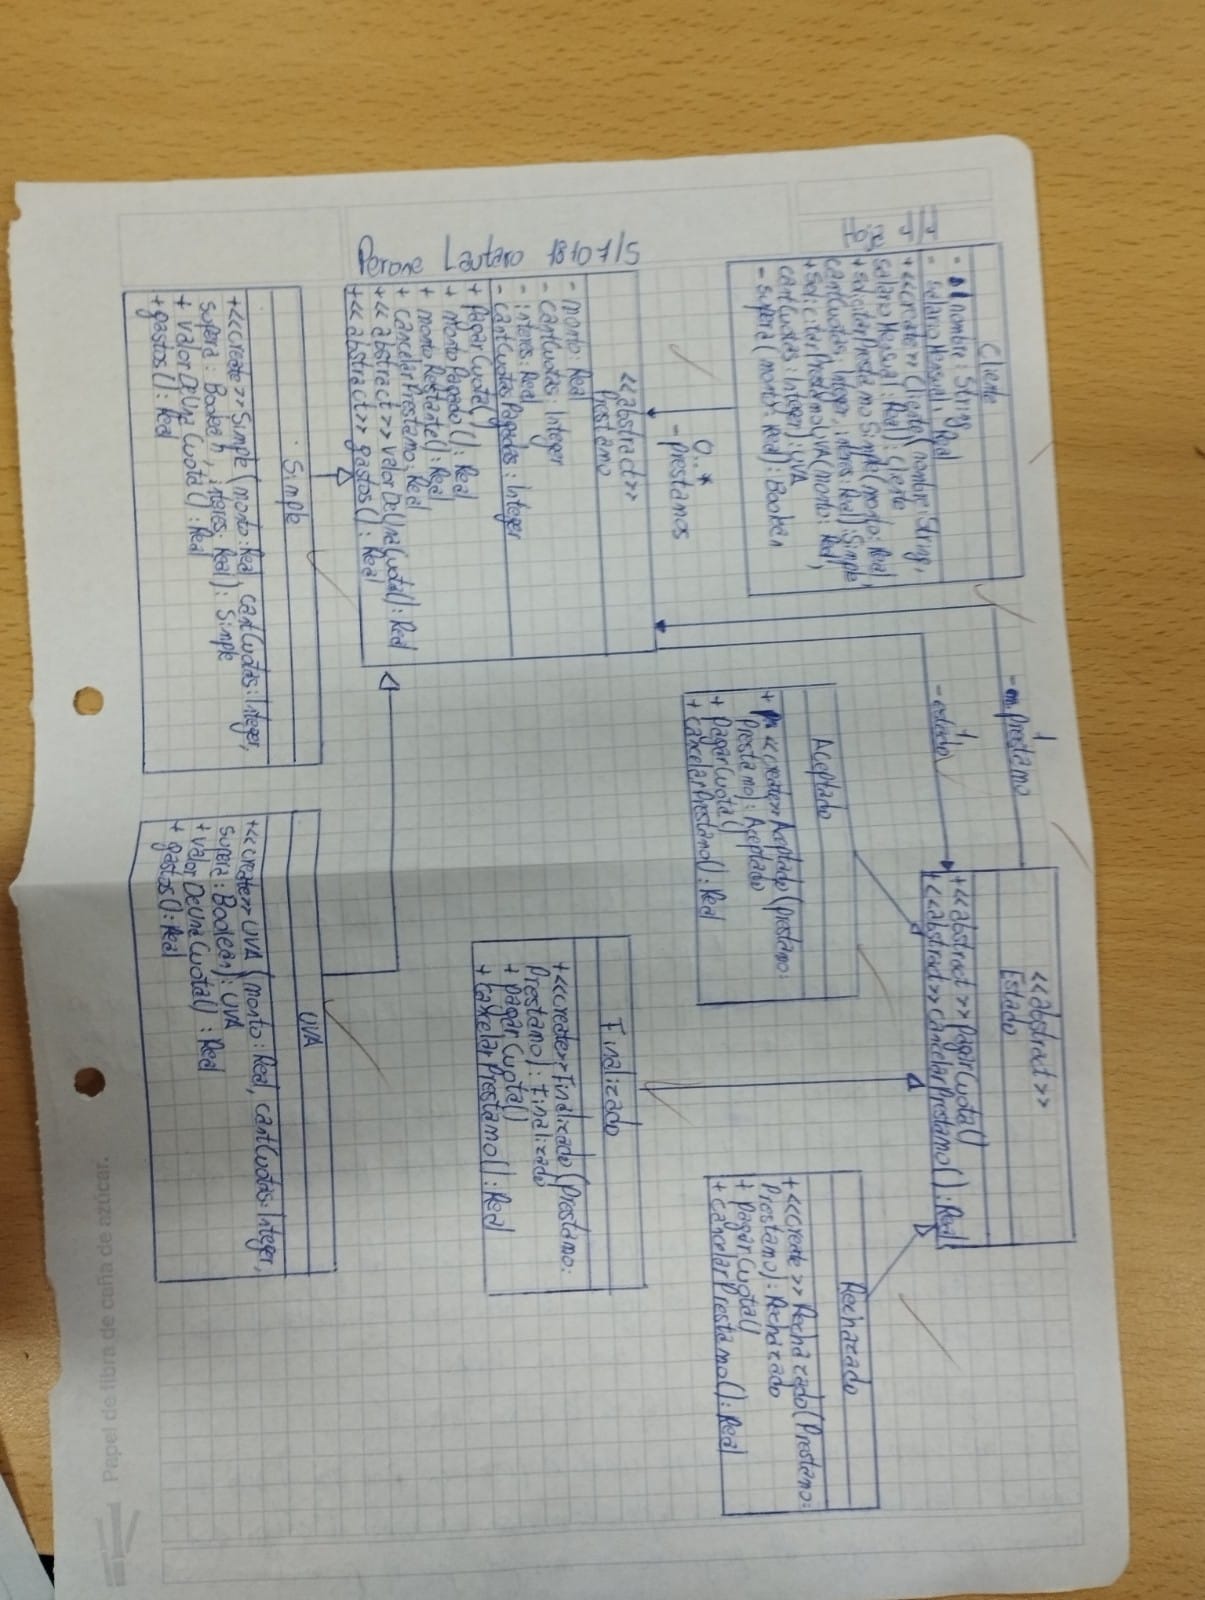 Hoja 4/4
Perone Lautaro 18107/5
Cliente
- nombre: String
- salarioMensual: Real
+ <<create>> Cliente(nombre: String,
salarioMensual: Real): Cliente
+ solicitarPrestamoSimple(monto: Real,
cantCuotas: Integer, interes: Real): Simple
+ solicitarPrestamoUVA(monto: Real,
cantCuotas: Integer): UVA
- supera(monto: Real): Boolean
0..*
- prestamos
1
- prestamo
1
- estado
<<abstract>>
Estado
+ <<abstract>> pagarCuota()
+ <<abstract>> cancelarPrestamo(): Real
Aceptado
+ <<create>> Aceptado(prestamo:
Prestamo): Aceptado
+ pagarCuota()
+ cancelarPrestamo(): Real
Rechazado
+ <<create>> Rechazado(Prestamo:
Prestamo): Rechazado
+ pagarCuota()
+ cancelarPrestamo(): Real
Finalizado
+ <<create>> Finalizado(Prestamo:
Prestamo): Finalizado
+ pagarCuota()
+ cancelarPrestamo(): Real
<<abstract>>
Prestamo
- monto: Real
- cantCuotas: Integer
- interes: Real
- cantCuotasPagadas: Integer
+ pagarCuota()
+ montoPagado(): Real
+ montoRestante(): Real
+ cancelarPrestamo: Real
+ << abstract>> valorDeUnaCuota(): Real
+ << abstract>> gastos(): Real
Simple
+ <<create>> Simple(monto: Real, cantCuotas: Integer,
supera: Boolean, interes: Real): Simple
+ valorDeUnaCuota(): Real
+ gastos(): Real
UVA
+ <<create>> UVA (monto: Real, cantCuotas: Integer,
supera: Boolean): UVA
+ valorDeUnaCuota(): Real
+ gastos(): Real
Papel de fibra de caña de azúcar.